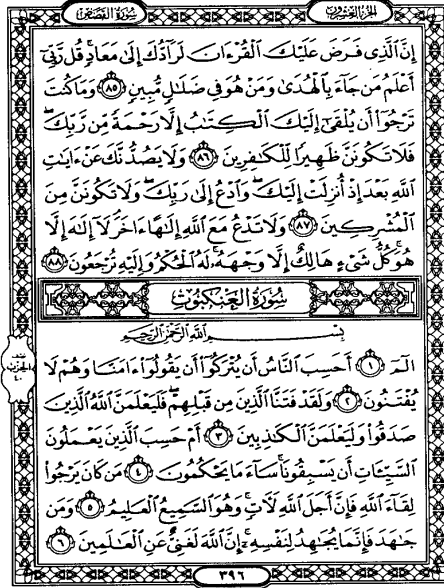 الجزء العشرون
سورة القصص
إِنَّ ٱلَّذِى فَرَضَ عَلَيْكَ ٱلْقُرْءَانَ لَرَآدُّكَ إِلَىٰ مَعَادٍۚ قُل رَّبِّىٓ
أَعْلَمُ مَن جَآءَ بِٱلْهُدَىٰ وَمَنْ هُوَ فِى ضَلَٰلٍ مُّبِينٍ ٨٥ وَمَا كُنتَ
تَرْجُوٓا۟ أَن يُلْقَىٰٓ إِلَيْكَ ٱلْكِتَٰبُ إِلَّا رَحْمَةً مِّن رَّبِّكَۖ
فَلَا تَكُونَنَّ ظَهِيرًا لِّلْكَٰفِرِينَ ٨٦ وَلَا يَصُدُّنَّكَ عَنْ ءَايَٰتِ
ٱللَّهِ بَعْدَ إِذْ أُنزِلَتْ إِلَيْكَۖ وَٱدْعُ إِلَىٰ رَبِّكَۖ وَلَا تَكُونَنَّ مِنَ
ٱلْمُشْرِكِينَ ٨٧ وَلَا تَدْعُ مَعَ ٱللَّهِ إِلَٰهًا ءَاخَرَۘ لَآ إِلَٰهَ إِلَّا
هُوَۚ كُلُّ شَىْءٍ هَالِكٌ إِلَّا وَجْهَهُۥۚ لَهُ ٱلْحُكْمُ وَإِلَيْهِ تُرْجَعُونَ ٨٨
سورة العنكبوت
بِسْمِ ٱللَّهِ ٱلرَّحْمَٰنِ ٱلرَّحِيمِ
الٓمٓ ١ أَحَسِبَ ٱلنَّاسُ أَن يُتْرَكُوٓا۟ أَن يَقُولُوٓا۟ ءَامَنَّا وَهُمْ لَا
يُفْتَنُونَ ٢ وَلَقَدْ فَتَنَّا ٱلَّذِينَ مِن قَبْلِهِمْۖ فَلَيَعْلَمَنَّ ٱللَّهُ ٱلَّذِينَ
صَدَقُوا۟ وَلَيَعْلَمَنَّ ٱلْكَٰذِبِينَ ٣ أَمْ حَسِبَ ٱلَّذِينَ يَعْمَلُونَ
ٱلسَّيِّـَٔاتِ أَن يَسْبِقُونَاۚ سَآءَ مَا يَحْكُمُونَ ٤ مَن كَانَ يَرْجُوا۟
لِقَآءَ ٱللَّهِ فَإِنَّ أَجَلَ ٱللَّهِ لَءَاتٍۚ وَهُوَ ٱلسَّمِيعُ ٱلْعَلِيمُ ٥ وَمَن
جَٰهَدَ فَإِنَّمَا يُجَٰهِدُ لِنَفْسِهِۦٓۚ إِنَّ ٱللَّهَ لَغَنِىٌّ عَنِ ٱلْعَٰلَمِينَ ٦
٣٩٦